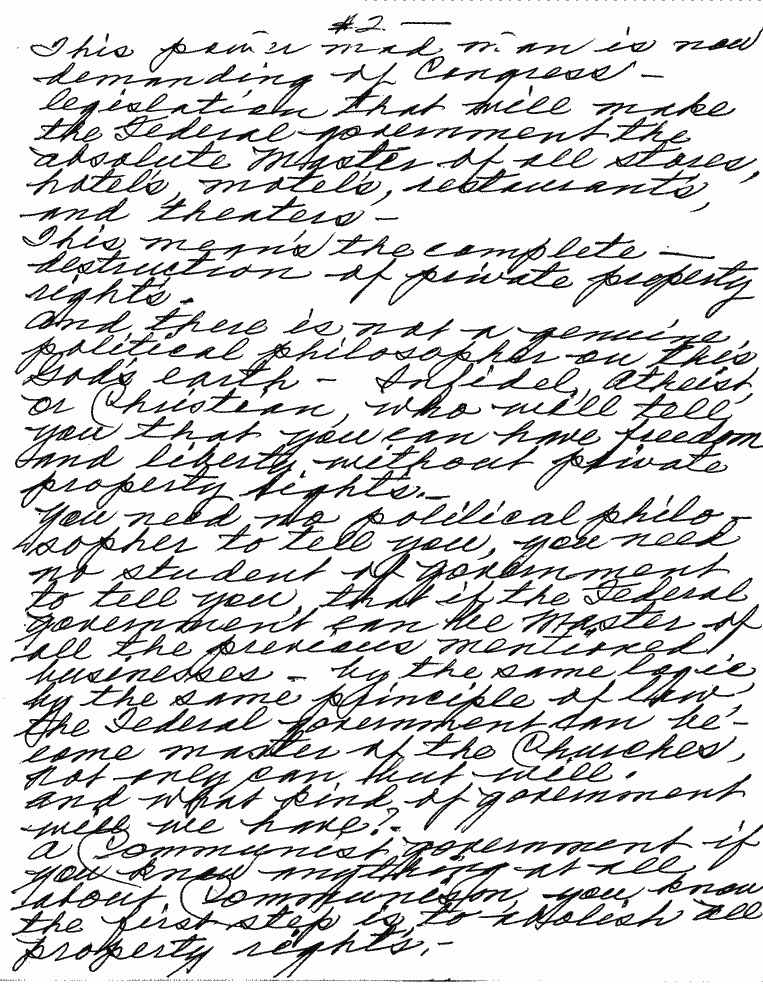 #2 —
This power mad man is now
demanding of Congress —
legislation that will make
the Federal government the
absolute Master of all stores,
hotel's, motel's, restaurants,
and theaters —
This mean's the complete —
destruction of private property
rights.
And there is not a genuine,
political philosopher on this
God's earth — Infidel, Atheist,
or Christian, who will tell
you that you can have freedom
and liberty without private
property rights.—
You need no political philo-
sopher to tell you, you need
no student of government
to tell you, that if the Federal
government can be Master of
all the previous mentioned
businesses — by the same logic
by the same principle of law,
the Federal government can be-
come master of the Churches,
not only can, but will.
And what kind of government
will we have?
A Communist government if
you know anything at all
about Communism, you know
the first step is to abolish all
property rights.—